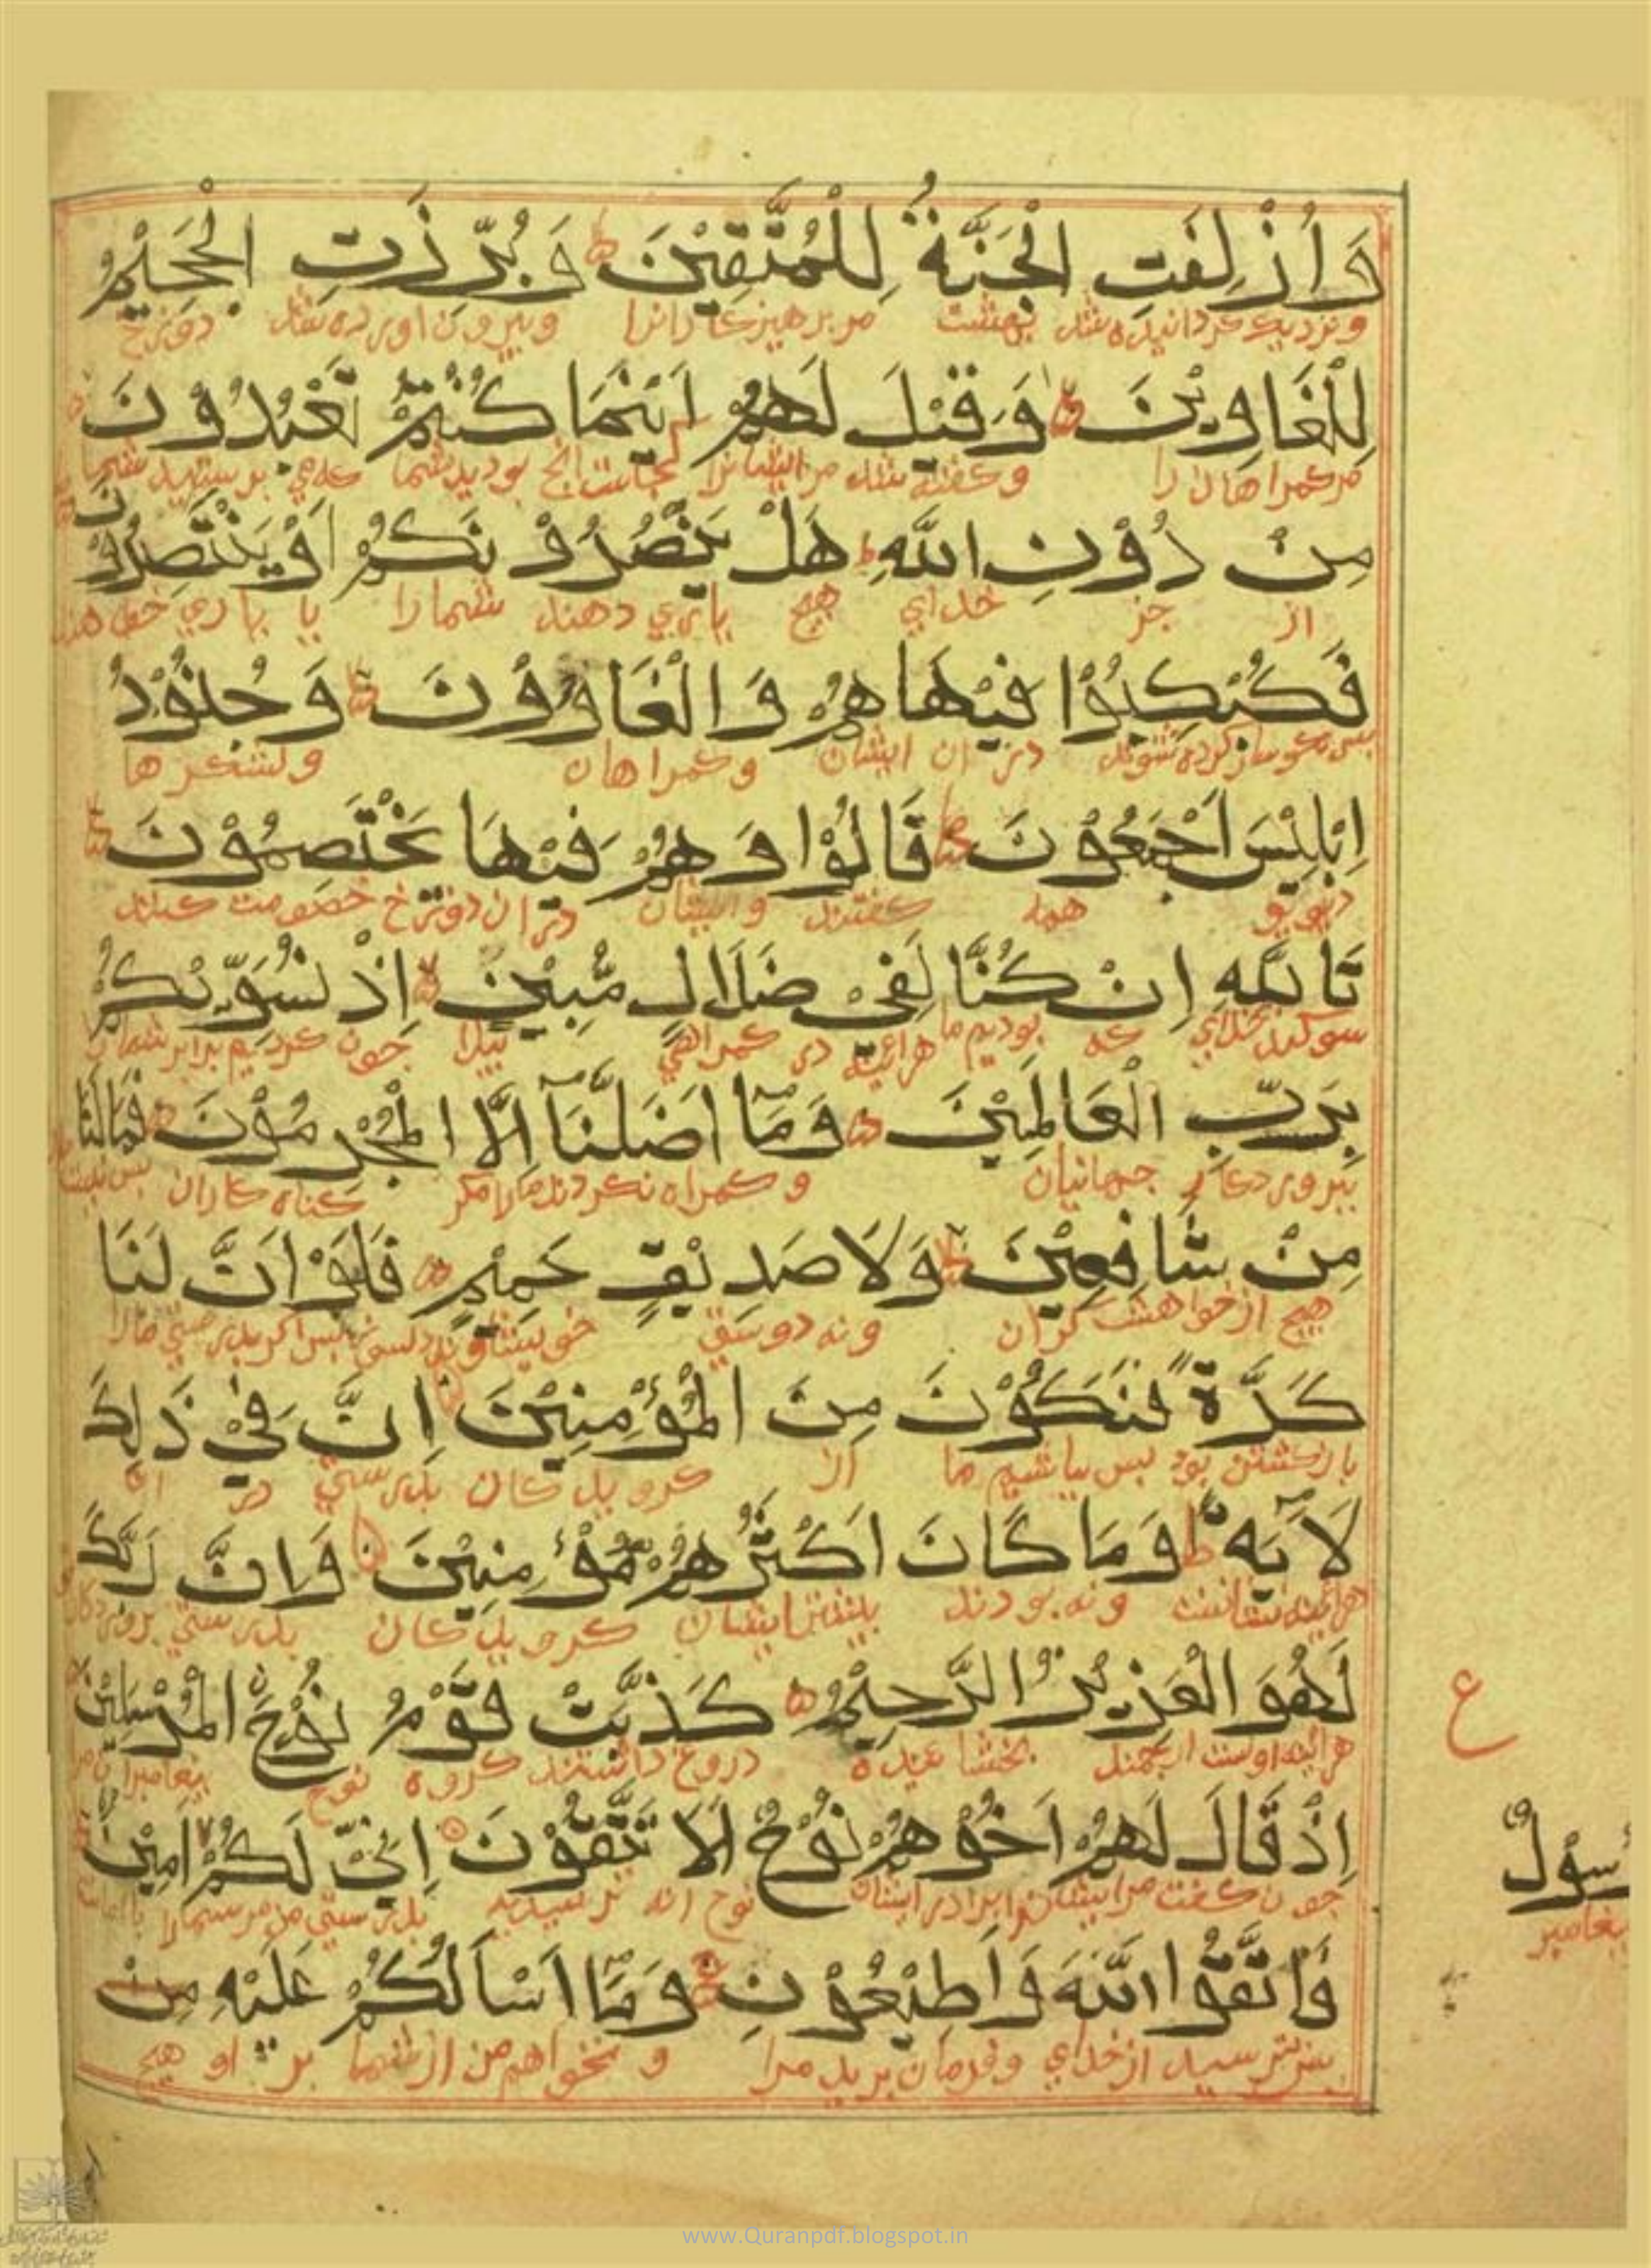 وَاُزْلِفَتِ الْجَنَّةُ لِلْمُتَّقِيْنَ وَبُرِّزَتِ الْجَحِيْمُ
ونزدیک کردانیده شد بهشت مر برهیزکارانرا وبیرون اورده شد دوزخ
لِلْغَاوِيْنَ وَقِيْلَ لَهُمْ اَيْنَمَا كُنْتُمْ تَعْبُدُوْنَ
مرکمراهان را وکفته شد مر ایشانرا کجاست انج بودید شما که می برستید شما
مِنْ دُوْنِ اللّٰهِ هَلْ يَنْصُرُوْنَكُمْ اَوْ يَنْتَصِرُوْنَ
از جز خدای هیج یاری دهند شمارا یا یاری
فَكُبْكِبُوْا فِيْهَا هُمْ وَالْغَاوُوْنَ وَجُنُوْدُ
بس نکوسار کرده شوند در ان ایشان وکمراهان ولشکرها
اِبْلِيْسَ اَجْمَعُوْنَ قَالُوْا وَهُمْ فِيْهَا يَخْتَصِمُوْنَ
دیو همه کفتند وایشان در ان دوزخ خصومت کنند
تَاللّٰهِ اِنْ كُنَّا لَفِيْ ضَلَالٍ مُّبِيْنٍ اِذْ نُسَوِّيْكُمْ
سوکند بخدای که بودیم ما هرائینه در کمراهی بیدا جون کردیم برابر شمارا
بِرَبِّ الْعَالَمِيْنَ وَمَا اَضَلَّنَا اِلَّا الْمُجْرِمُوْنَ فَمَا لَنَا
ببروردکار جهانیان وکمراه نکردند مارا مکر کناه کاران بس نیست
مِنْ شَافِعِيْنَ وَلَا صَدِيْقٍ حَمِيْمٍ فَلَوْ اَنَّ لَنَا
هیج از خواهشت کران ونه دوستی خویشاوند دلسوز بس اکر بدرستی مارا
كَرَّةً فَنَكُوْنَ مِنَ الْمُؤْمِنِيْنَ اِنَّ فِيْ ذٰلِكَ
بازکشتن بود بس باشیم ما از کرویدکان بدرستی در ان
لَاٰيَةً وَمَا كَانَ اَكْثَرُهُمْ مُّؤْمِنِيْنَ وَاِنَّ رَبَّكَ
هرائینه نشانست ونه بودند بیشتر ایشان کرویدکان بدرستی
لَهُوَ الْعَزِيْزُ الرَّحِيْمُ كَذَّبَتْ قَوْمُ نُوْحٍ الْمُرْسَلِيْنَ
هرائینه اوست ارجمند بخشاینده دروغ داشتند کروه نوح بیغامبران
ع
اِذْ قَالَ لَهُمْ اَخُوْهُمْ نُوْحٌ اَلَا تَتَّقُوْنَ اِنِّيْ لَكُمْ اَمِيْنٌ
رسُوْلٌ
جون کفت مر ایشانرا برادر ایشان نوح انه ترسیدید بدرستی من مر شمارا
بیغامبر
فَاتَّقُوا اللّٰهَ وَاَطِيْعُوْنِ وَمَا اَسْاَلُكُمْ عَلَيْهِ مِنْ
بس بترسید از خدای وفرمان برید مرا ونخواهم من از شما بر او هیج
www.Quranpdf.blogspot.in